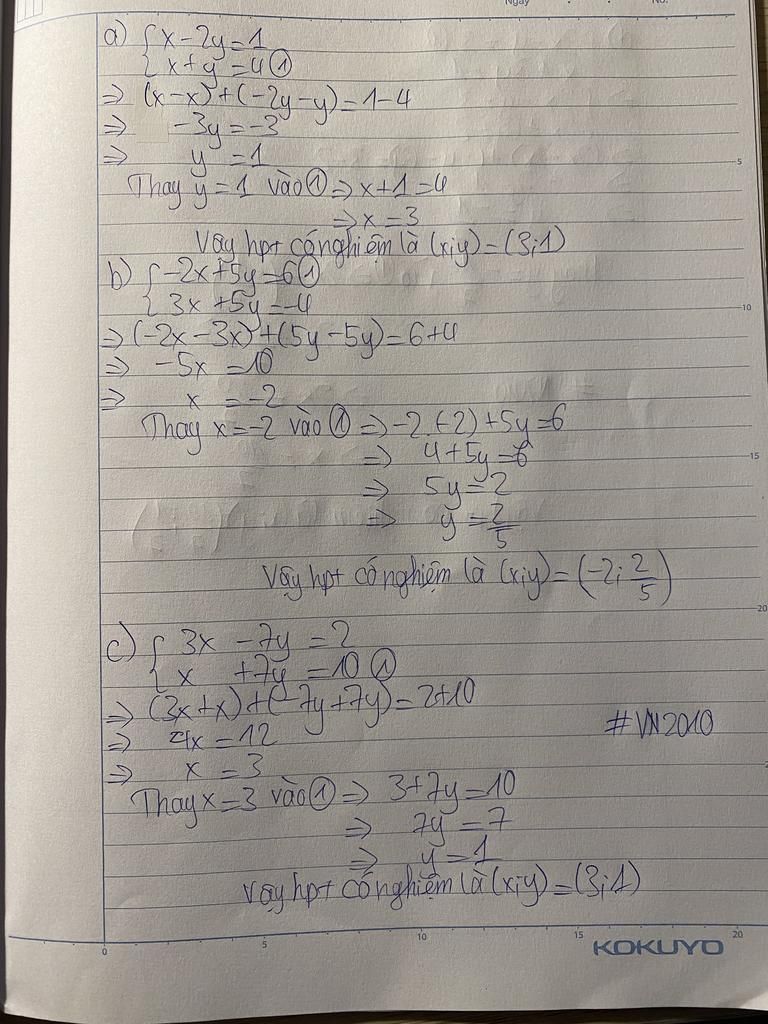 Ngày
No.
a) { x - 2y = 1
x + y = 4 ①
=> (x-x)+(-2y-y)=1-4
=> -3y = -3
=> y = 1
Thay y = 1 vào ① => x+1 = 4
=> x = 3
Vậy hpt có nghiệm là (x;y) = (3;1)
b) { -2x + 5y = 6 ①
3x + 5y = -4
=> (-2x-3x)+(5y-5y)=6+4
=> -5x = 10
=> x = -2
Thay x = -2 vào ① => -2.(-2)+5y=6
=> 4+5y=6
=> 5y=2
=> y = 2/5
Vậy hpt có nghiệm là (x;y) = (-2; 2/5)
c) { 3x - 7y = 2
x + 7y = 10 ①
=> (3x+x)+(-7y+7y)=2+10
=> 4x = 12
#VN2010
=> x = 3
Thay x = 3 vào ① => 3+7y=10
=> 7y = 7
=> y = 1
Vậy hpt có nghiệm là (x;y) = (3;1)
5
10
15
20
0 5 10 15 20
KOKUYO